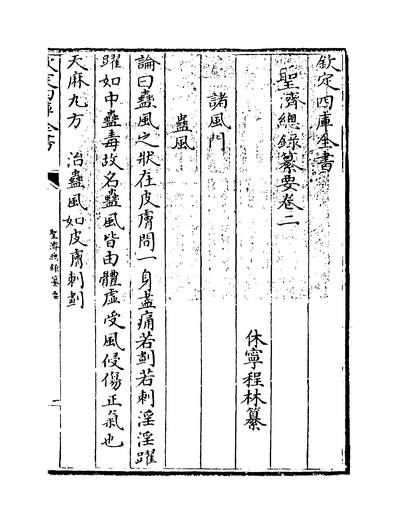 欽定四庫全書
聖濟總録纂要卷二
休寧程林纂
諸風門
蠱風
論曰蠱風之狀在皮膚間一身盡痛若劃若刺淫淫躍
躍如中蠱毒故名蠱風皆由體虚受風侵傷正氣也
天麻丸方 治蠱風如皮膚刺劃
欽定四庫全書
聖濟總録纂要
二